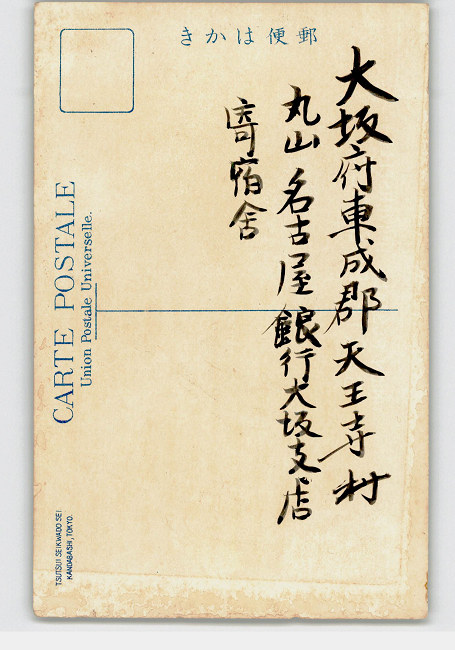 きかは便郵
大坂府東成郡天王寺村
丸山名古屋銀行大坂支店
寄宿舎
CARTE POSTALE
Union Postale Universelle.
TSUTSUI SEIKWADO SEI
KANDABASHI, TOKYO.